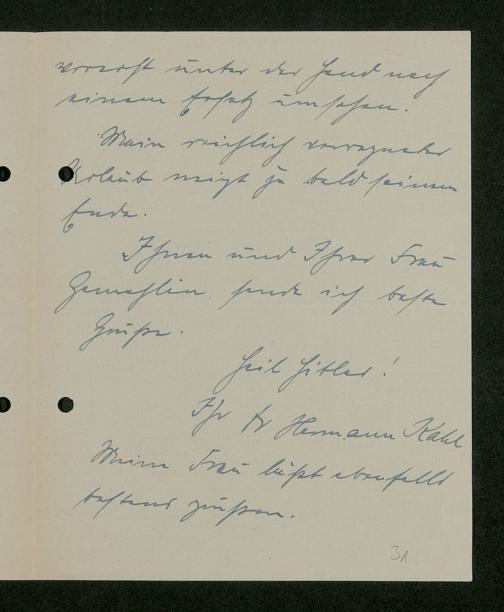 vorerst unter der Hand nach
einem Ersatz umsehen.
Mein reichlich verregneter
Urlaub neigt ja bald seinem
Ende.
Ihnen und Ihrer Frau
Gemahlin sende ich beste
Grüße.
Heil Hitler!
Ihr Dr Hermann Kahl
Meine Frau läßt ebenfalls
bestens grüßen.
31